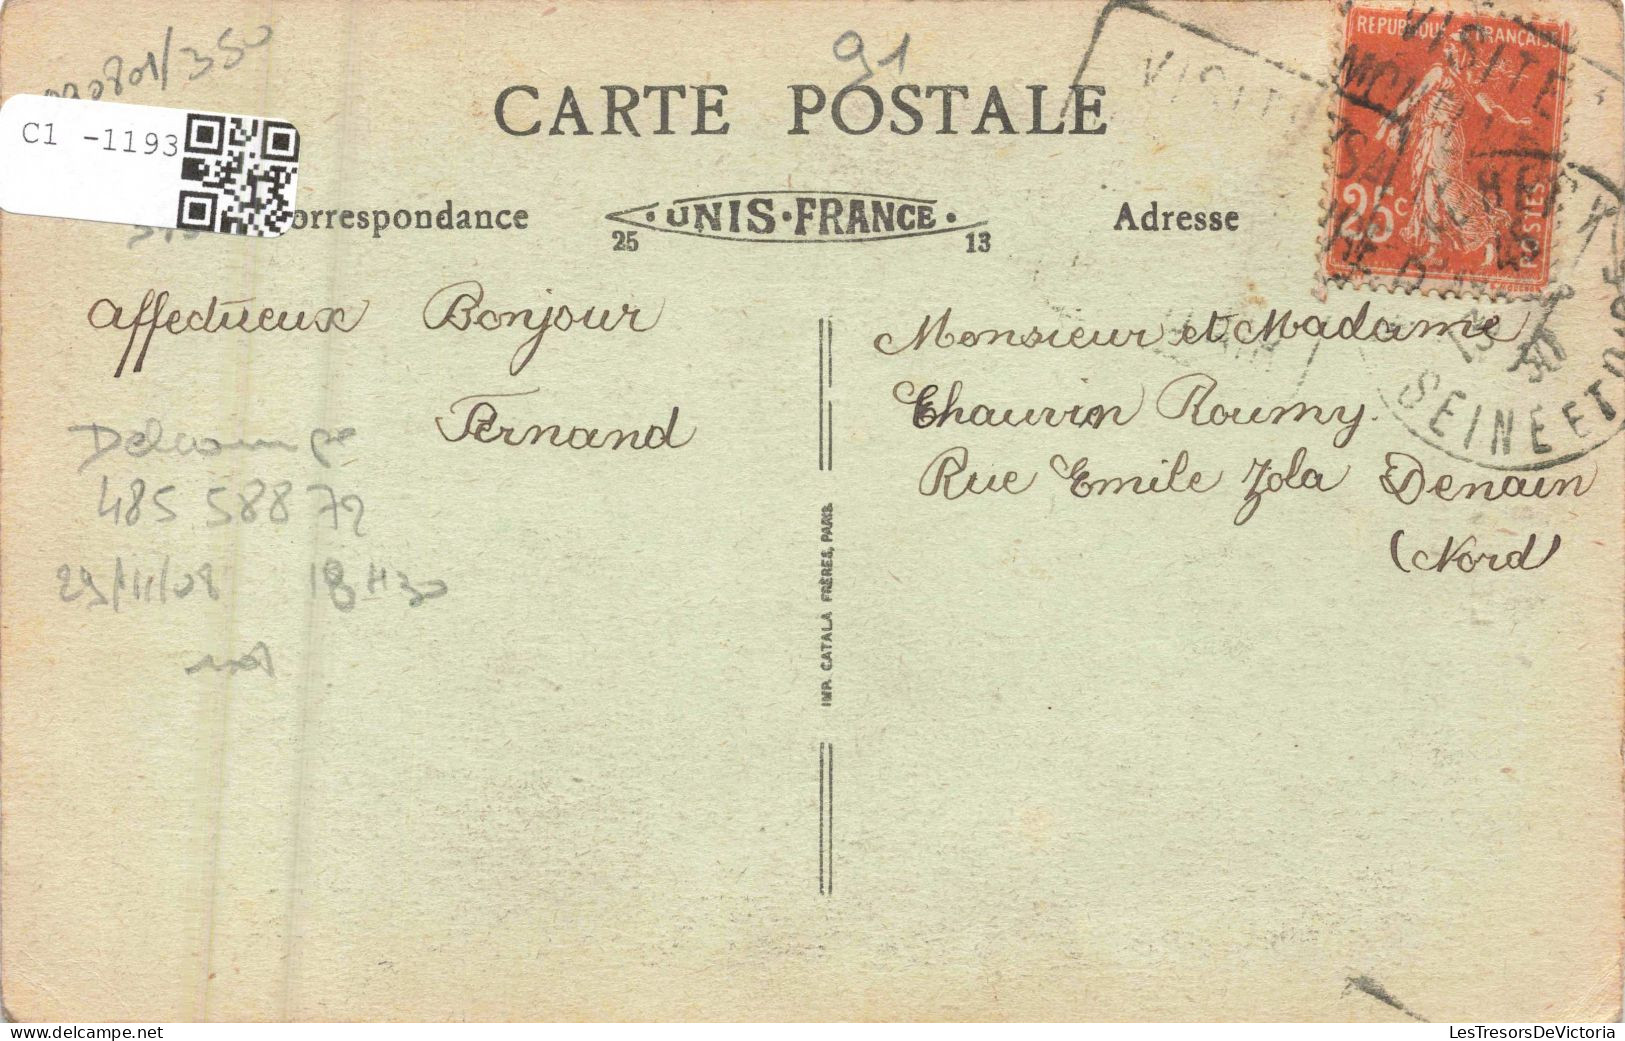 91
CARTE POSTALE
C1 -1193
RÉPUBLIQUE FRANÇAISE
25c
POSTES
VISITE
Correspondance
UNIS-FRANCE
25 13
Adresse
affectueux Bonjour
Fernand
Monsieur et Madame
Chauvin Roumy.
Rue Emile Zola Denain
(Nord)
SEINE ET OISE
485 588 72
29/11/08 18H30
IMP. CATALA FRÈRES, PARIS
LesTresorsDeVictoria